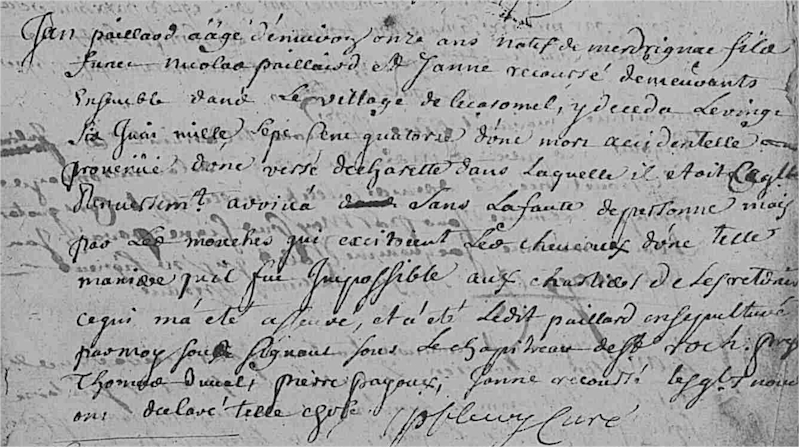 Jan paillard aâgé denuiron onze ans natif de merdrignac fils
furent nicolas paillard et Janne recoussé demeurants
Ensemble dans Le village de , y deceda Le vingt
six Juai mille sept cent quatorze d'une mort accidentelle
prouenüe d'une versé de charette dans Laquelle il etoit Laql
Renuersemt arriua sans La faute de personne mais
par Les mouches qui excitoient Les cheuaux d'une telle
maniere quil fut Impossible aux chartiers de Les retenir
ce qui m'a eté asseuré, et a eté Ledit paillard ensepulturé
par moy sous signant sous Le chapiteau de st roch.
Thomas Duual, pierre payoux, Janne recoussé lesqls nous
ont declaré telle chose curé